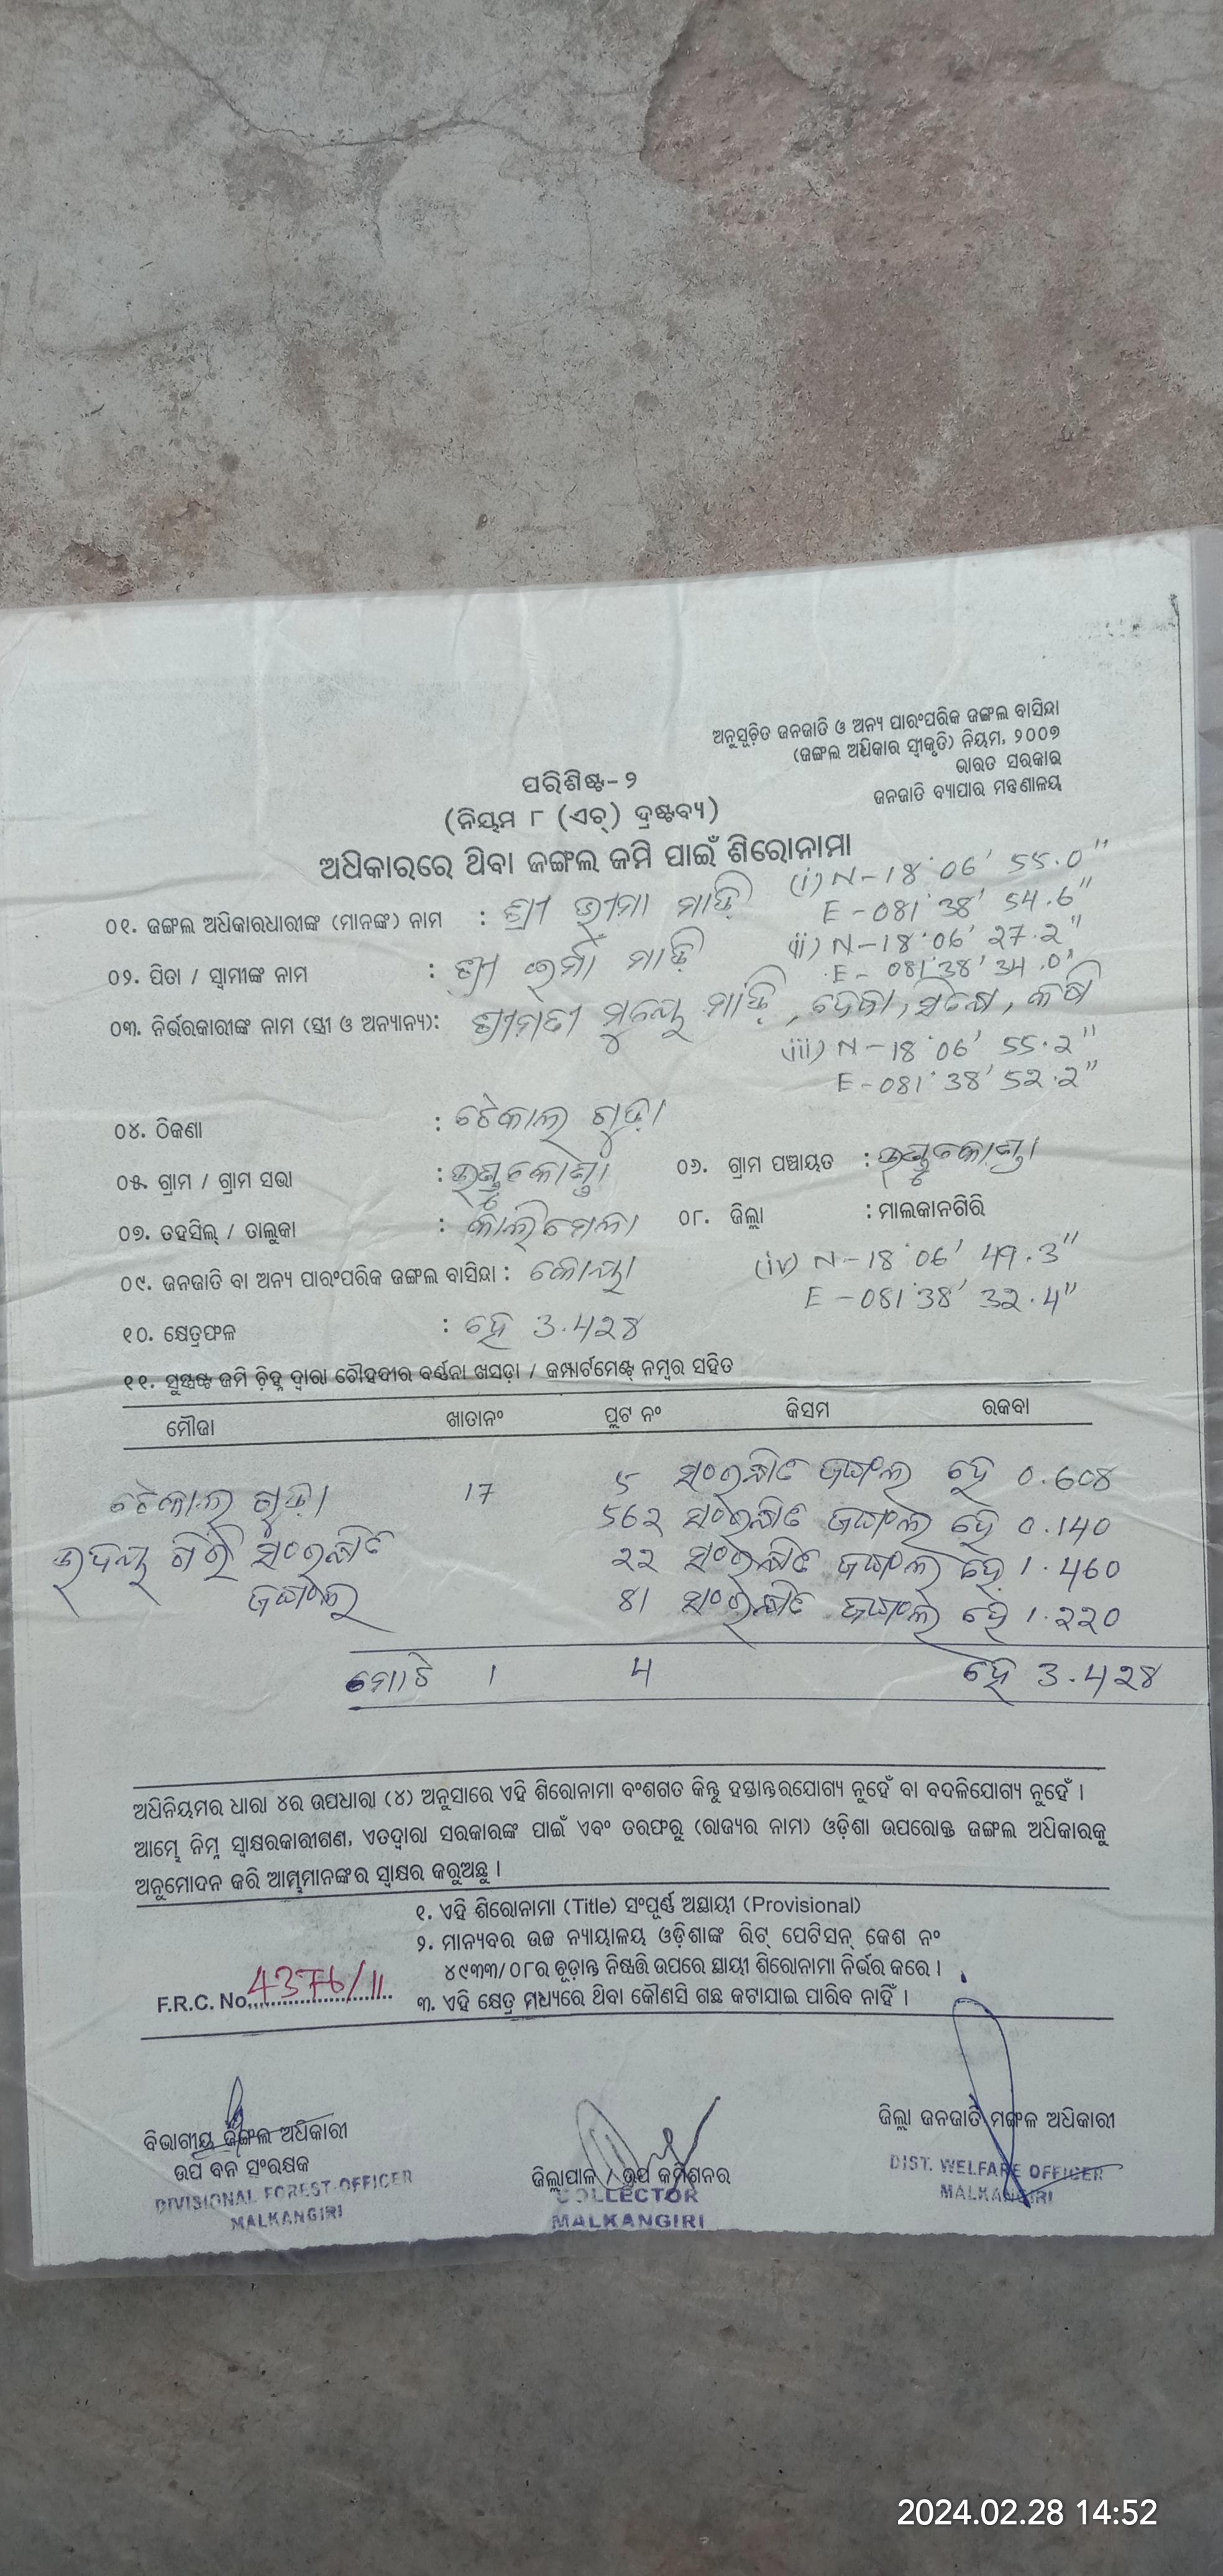 ଅନୁସୂଚିତ ଜନଜାତି ଓ ଅନ୍ୟ ପାରଂପରିକ ଜଙ୍ଗଲ ବାସିନ୍ଦା
(ଜଙ୍ଗଲ ଅଧିକାର ସ୍ୱୀକୃତି) ନିୟମ, ୨୦୦୭
ଭାରତ ସରକାର
ଜନଜାତି ବ୍ୟାପାର ମନ୍ତ୍ରଣାଳୟ
ପରିଶିଷ୍ଟ-୨
(ନିୟମ ୮ (ଏଚ୍) ଦ୍ରଷ୍ଟବ୍ୟ)
ଅଧିକାରରେ ଥିବା ଜଙ୍ଗଲ ଜମି ପାଇଁ ଶିରୋନାମା
(i) N-18°06' 55.0"
E-081°38' 54.6"
୦୧. ଜଙ୍ଗଲ ଅଧିକାରଧାରୀଙ୍କ (ମାନଙ୍କ) ନାମ : ଶ୍ରୀ ଭୀମା ମାଡ଼ି
(ii) N-18°06' 27.2"
E-081°38' 34.0"
୦୨. ପିତା / ସ୍ୱାମୀଙ୍କ ନାମ : ଶ୍ରୀ ମାଡ଼ି
୦୩. ନିର୍ଭରକାରୀଙ୍କ ନାମ (ସ୍ତ୍ରୀ ଓ ଅନ୍ୟାନ୍ୟ): ଶ୍ରୀମତୀ ମାଡ଼ି, ଦେବା,
(iii) N-18°06' 55.2"
E-081°38' 52.2"
୦୪. ଠିକଣା : ଟେକାଲ ଗୁଡ଼ା
୦୫. ଗ୍ରାମ / ଗ୍ରାମ ସଭା : ୦୬. ଗ୍ରାମ ପଞ୍ଚାୟତ :
୦୭. ତହସିଲ୍ / ତାଲୁକା : କାଲିମେଳା ୦୮. ଜିଲ୍ଲା : ମାଲକାନଗିରି
୦୯. ଜନଜାତି ବା ଅନ୍ୟ ପାରଂପରିକ ଜଙ୍ଗଲ ବାସିନ୍ଦା : କୋୟା
(iv) N-18°06' 49.3"
E-081°38' 32.4"
୧୦. କ୍ଷେତ୍ରଫଳ : ହେ 3.428
୧୧. ସୁସ୍ପଷ୍ଟ ଜମି ଚିହ୍ନ ଦ୍ୱାରା ଚୌହଦୀର ବର୍ଣ୍ଣନା ଖସଡ଼ା / କମ୍ପାର୍ଟମେଣ୍ଟ୍ ନମ୍ବର ସହିତ
ମୌଜା ଖାତାନଂ ପ୍ଲଟ ନଂ କିସମ ରକବା
ଟେକାଲ ଗୁଡ଼ା 17 5 ସଂରକ୍ଷିତ ଜଙ୍ଗଲ ହେ 0.608
562 ସଂରକ୍ଷିତ ଜଙ୍ଗଲ ହେ 0.140
ଉଦୟ ଗିରି ସଂରକ୍ଷିତ 22 ସଂରକ୍ଷିତ ଜଙ୍ଗଲ ହେ 1.460
ଜଙ୍ଗଲ 81 ସଂରକ୍ଷିତ ଜଙ୍ଗଲ ହେ 1.220
ମୋଟ 1 4 ହେ 3.428
ଅଧିନିୟମର ଧାରା ୪ର ଉପଧାରା (୪) ଅନୁସାରେ ଏହି ଶିରୋନାମା ବଂଶଗତ କିନ୍ତୁ ହସ୍ତାନ୍ତରଯୋଗ୍ୟ ନୁହେଁ ବା ବଦଳିଯୋଗ୍ୟ ନୁହେଁ ।
ଆମ୍ଭେ ନିମ୍ନ ସ୍ୱାକ୍ଷରକାରୀଗଣ, ଏତଦ୍ୱାରା ସରକାରଙ୍କ ପାଇଁ ଏବଂ ତରଫରୁ (ରାଜ୍ୟର ନାମ) ଓଡ଼ିଶା ଉପରୋକ୍ତ ଜଙ୍ଗଲ ଅଧିକାରକୁ
ଅନୁମୋଦନ କରି ଆମ୍ଭମାନଙ୍କର ସ୍ୱାକ୍ଷର କରୁଅଛୁ ।
୧. ଏହି ଶିରୋନାମା (Title) ସଂପୂର୍ଣ୍ଣ ଅସ୍ଥାୟୀ (Provisional)
୨. ମାନ୍ୟବର ଉଚ୍ଚ ନ୍ୟାୟାଳୟ ଓଡ଼ିଶାଙ୍କ ରିଟ୍ ପେଟିସନ୍ କେଶ ନଂ
୪୯୩୩/୦୮ର ଚୂଡ଼ାନ୍ତ ନିଷ୍ପତ୍ତି ଉପରେ ସ୍ଥାୟୀ ଶିରୋନାମା ନିର୍ଭର କରେ ।
F.R.C. No. 4376/11
୩. ଏହି କ୍ଷେତ୍ର ମଧ୍ୟରେ ଥିବା କୌଣସି ଗଛ କଟାଯାଇ ପାରିବ ନାହିଁ ।
ବିଭାଗୀୟ ଜଙ୍ଗଲ ଅଧିକାରୀ
ଉପ ବନ ସଂରକ୍ଷକ
DIVISIONAL FOREST OFFICER
MALKANGIRI
ଜିଲ୍ଲାପାଳ / ଉପ କମିଶନର
COLLECTOR
MALKANGIRI
ଜିଲ୍ଲା ଜନଜାତି ମଙ୍ଗଳ ଅଧିକାରୀ
DIST. WELFARE OFFICER
MALKANGIRI
2024.02.28 14:52